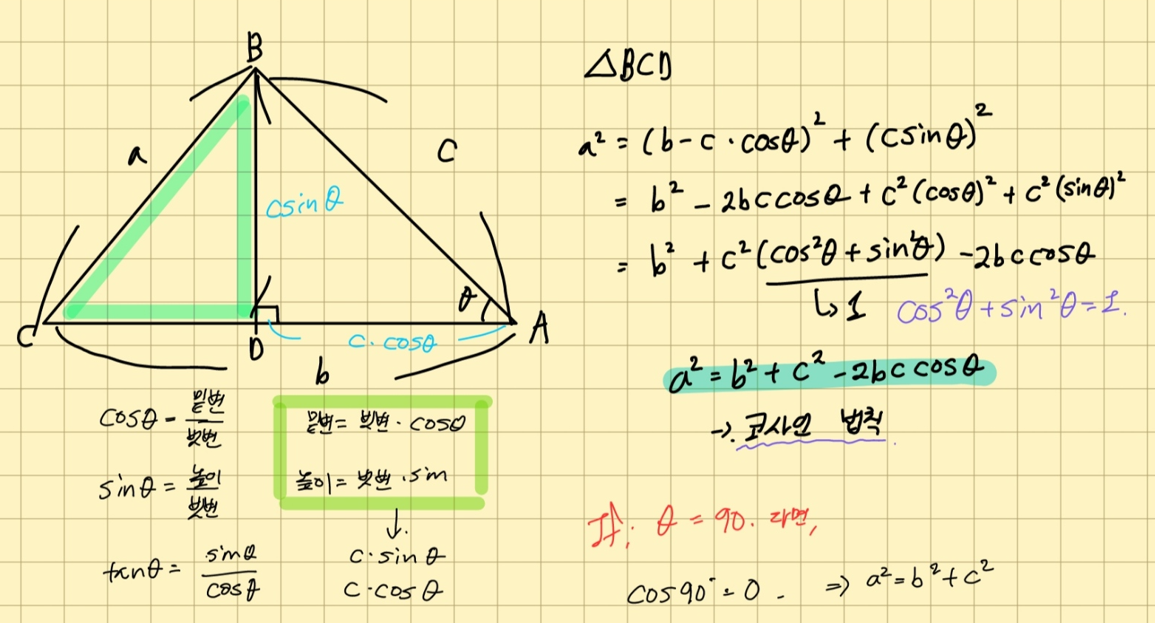 B
a
C
csinθ
θ
C
D
A
c·cosθ
b
cosθ = 밑변/빗변
밑변 = 빗변 · cosθ
sinθ = 높이/빗변
높이 = 빗변 · sin
↓
tanθ = sinθ/cosθ
c·sinθ
c·cosθ
△BCD
a² = (b-c·cosθ)² + (csinθ)²
= b² - 2bccosθ + c²(cosθ)² + c²(sinθ)²
= b² + c²(cos²θ + sin²θ) - 2bccosθ
↳ 1 cos²θ + sin²θ = 1.
a² = b² + c² - 2bccosθ
→ 코사인 법칙
If; θ = 90. 라면,
cos90° = 0. ⇒ a² = b² + c²